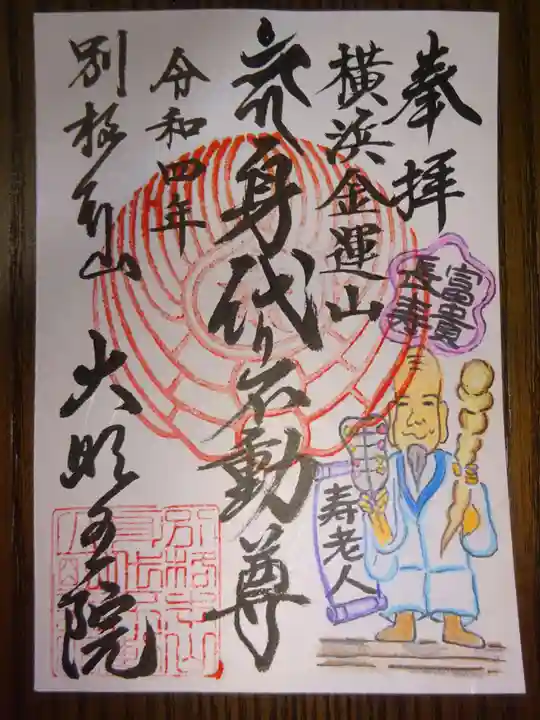 奉拝
富貴
長寿
横浜金運山
身代り不動尊
寿老人
令和四年
別格本山
大明王院